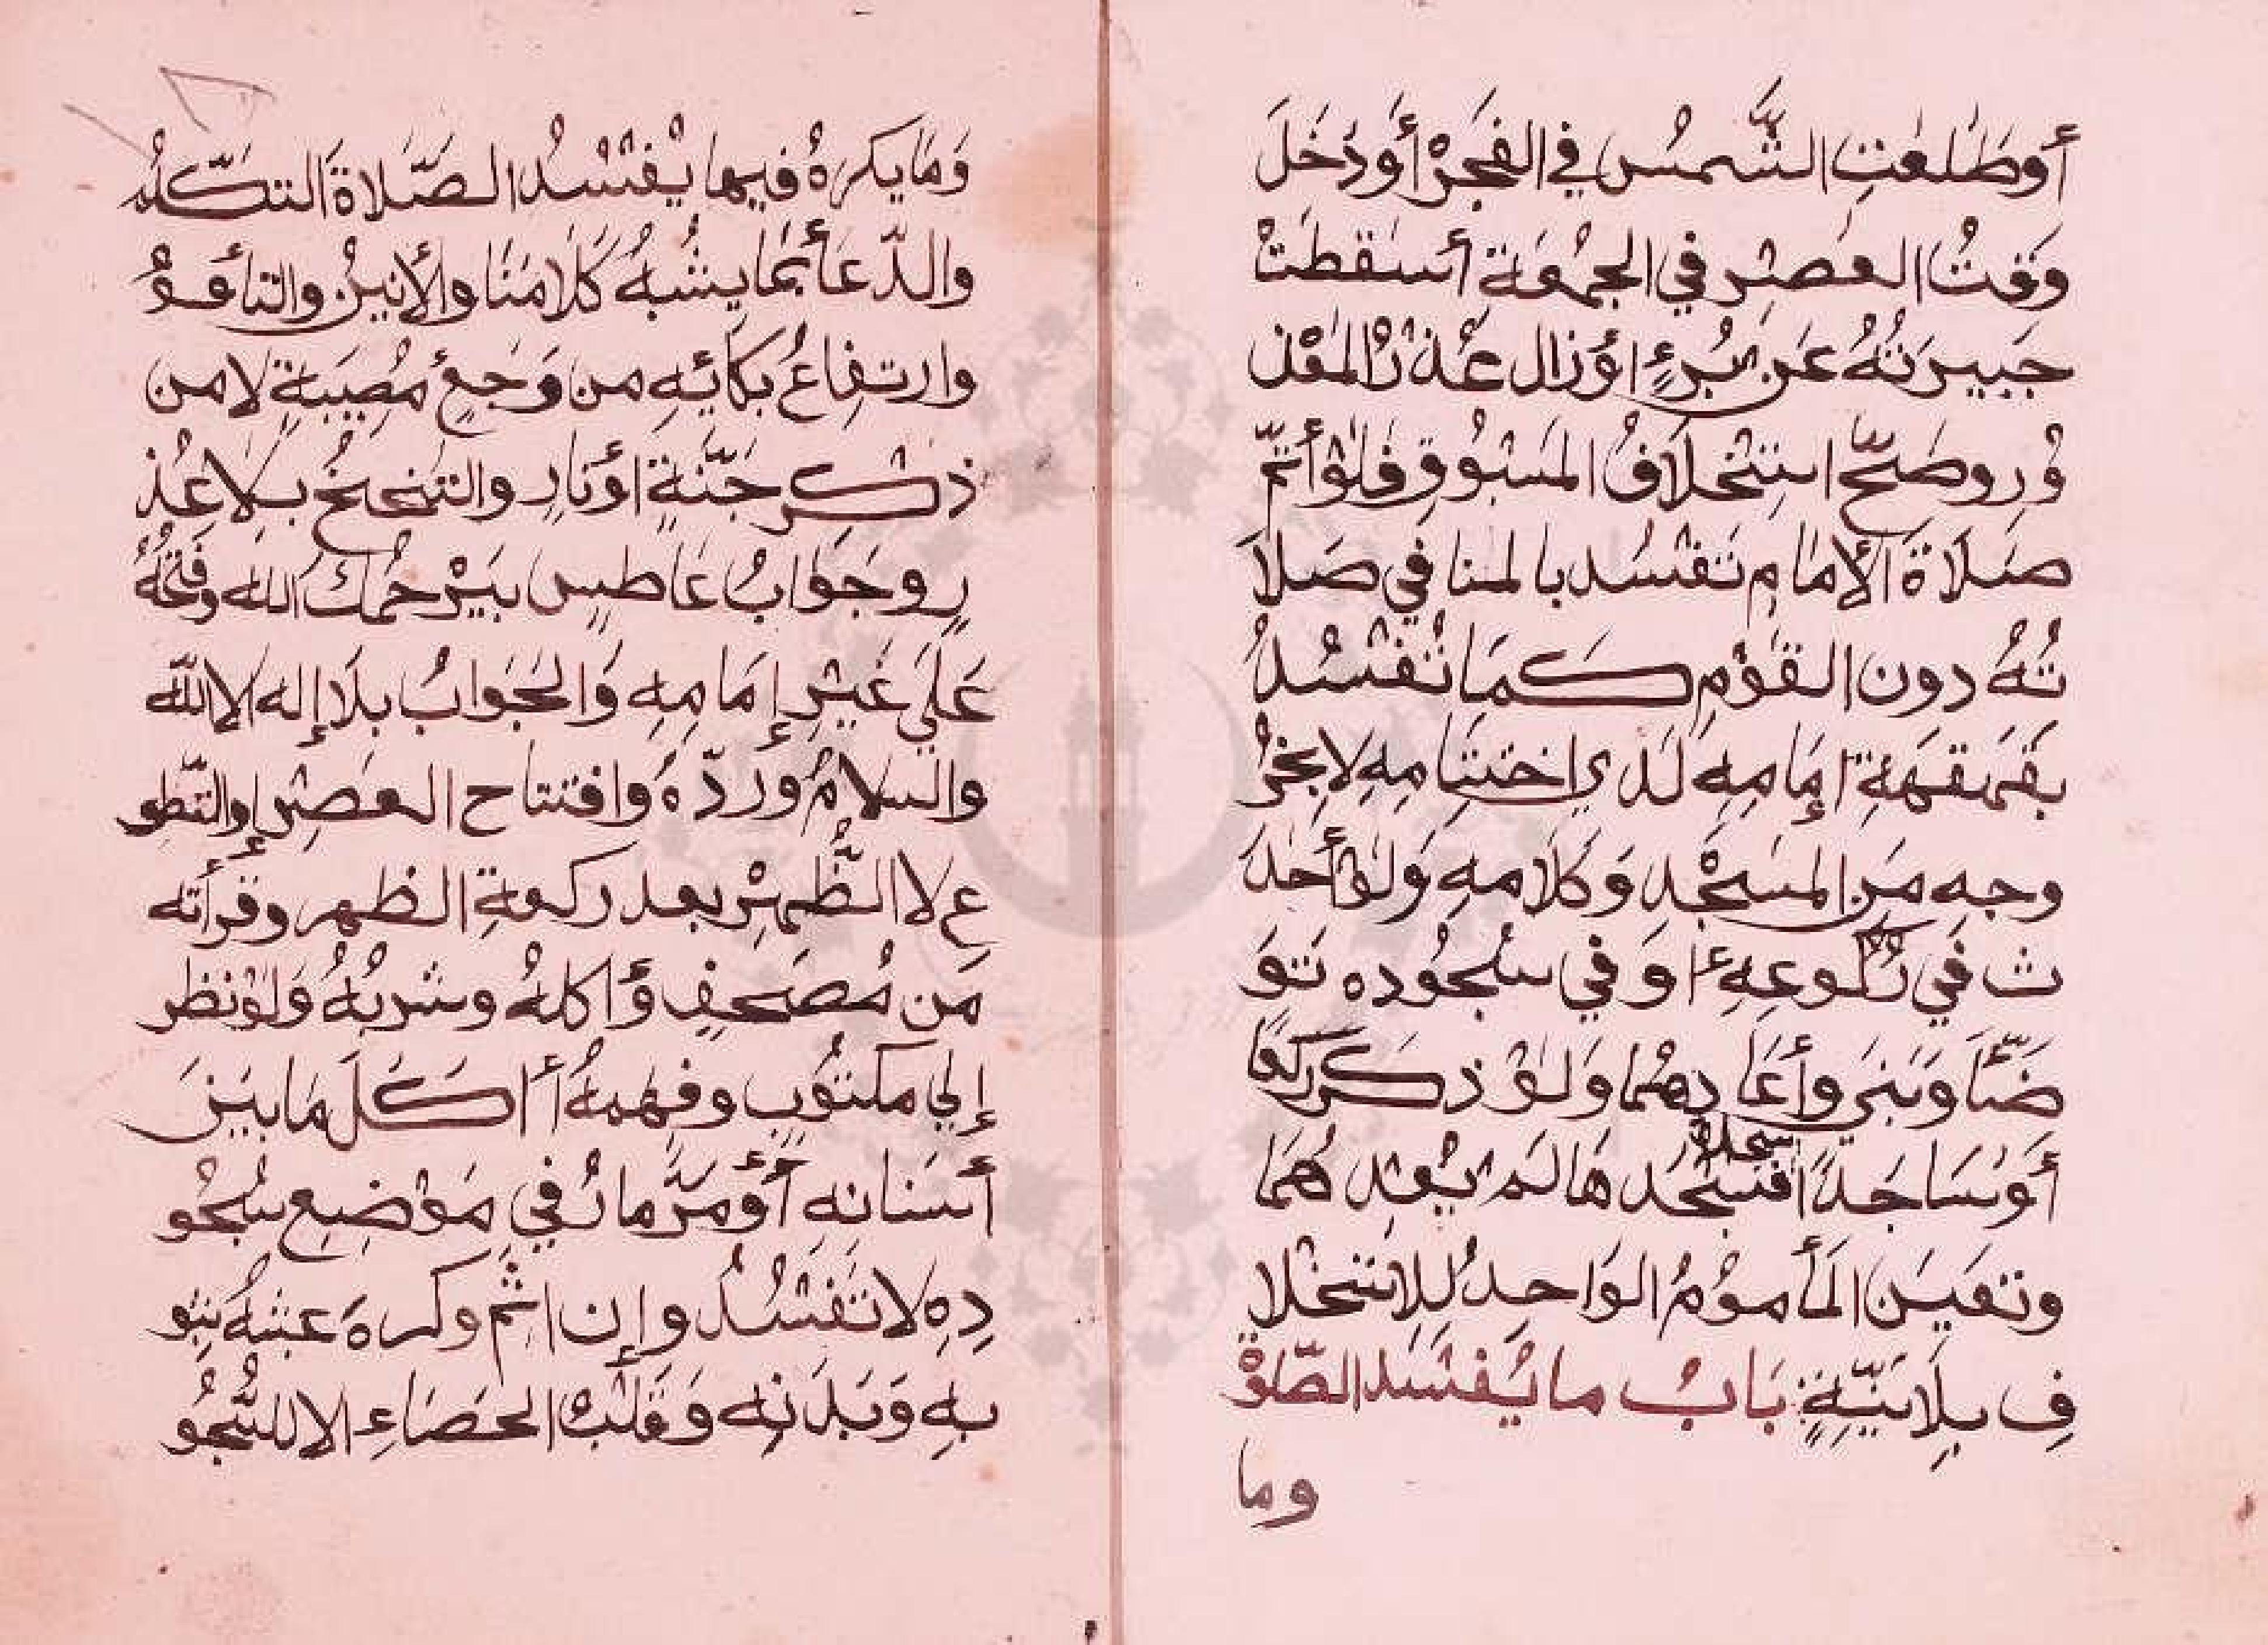 أو طلعت الشمس في الفجر أو دخل
وقت العصر في الجمعة أسقطت
جبيرته عن برء أوزال عذر المعذ
ور وصح استخلاف المسبوق فلو أتم
صلاة الأمام تفسد بالمنا في صلا
ته دون القوم كما تفسد
بقهقهة إمامه لدي اختتامه لا بخر
وجه من المسجد وكلامه ولو أحد
ث في ركوعه أو في سجوده تو
ضّأ وبني وأعادهما ولو ذكر راكعا
أو ساجدا سجدة فسجدها لم يعد هما
وتعين المأموم الواحد للاستخلا
ف بلا نيّة باب ما يفسد الصّلوة
وما
وما يكره فيها يفسد الصّلاة التكلم
والدّعا بما يشبه كلامنا والأنين والتأوه
وارتفاع بكائه من وجع مصيبة لا من
ذكر جنّة أونار والتنحنح بلا عذ
ر وجواب عاطس بيرحمك الله وفتحه
علي غير إمامه والجواب بلا إله الا الله
والسلام وردّه وافتتاح العصر أوالتّطو
ع لا الظّهر بعد ركعة الظهر وقرأته
من مصحف وأكله وشربه ولو نظر
إلي مكتوب وفهمه أو أكل ما بين
أسنانه أو مرّ مار في موضع سجو
ده لا تفسد وإن اثم وكره عبثه بثو
به وبدنه وقلب الحصاء الا للسّجو